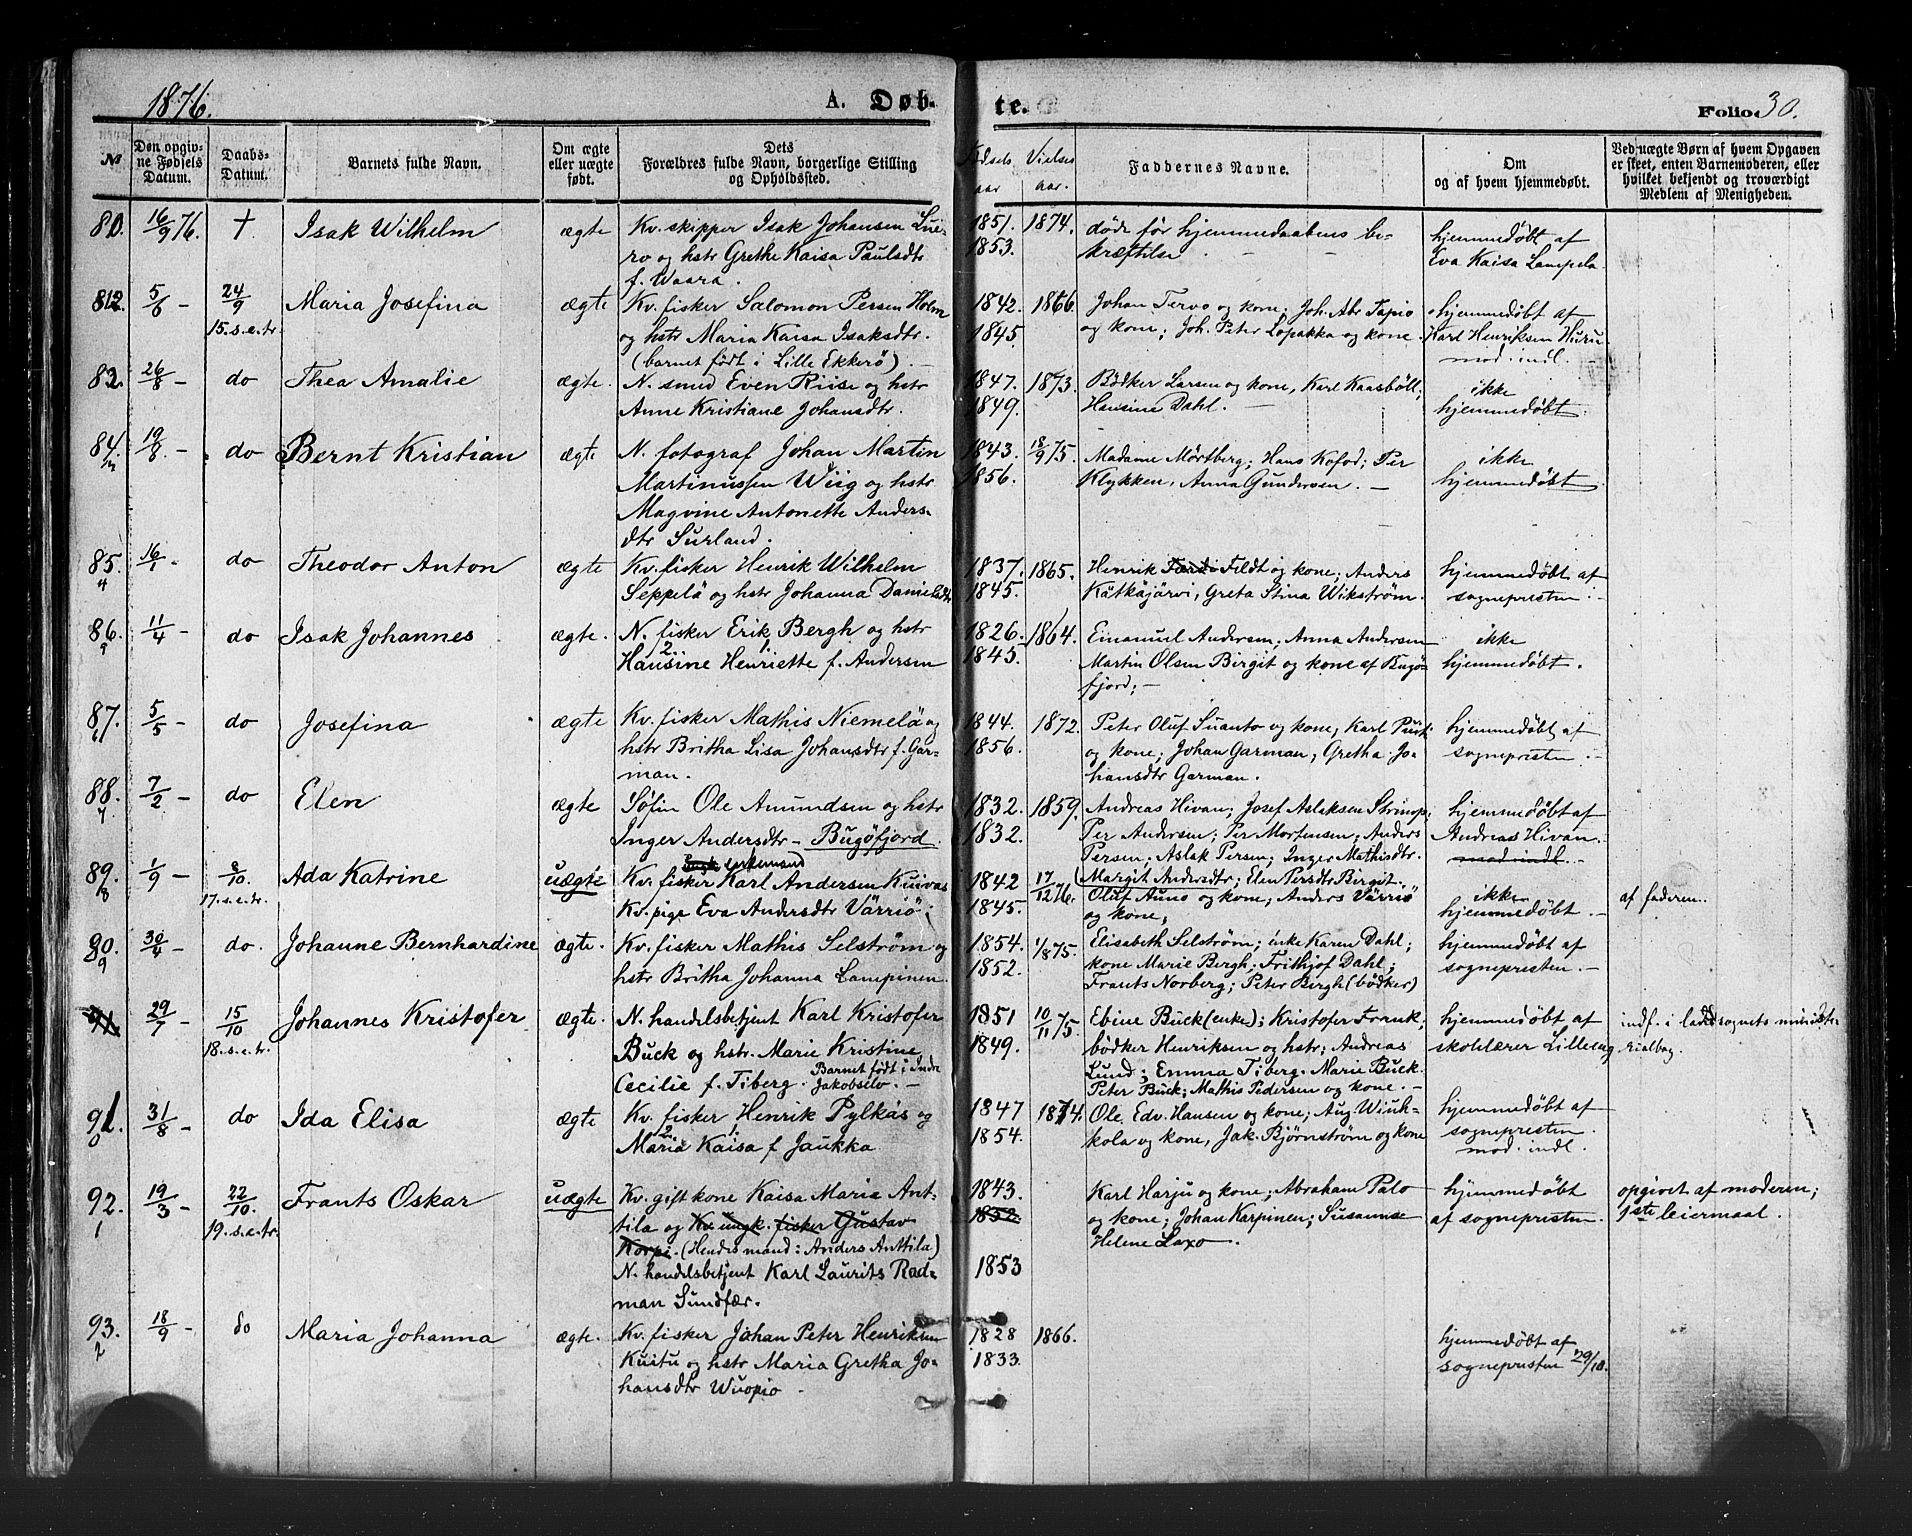 1876.
A. Døb-
te.
Folio 30.
№
Den opgiv-
ne Fødsels
Datum.
Daabs-
Datum.
Barnets fulde Navn.
Om ægte
eller uægte
født.
Dets
Forældres fulde Navn, borgerlige Stilling
og Opholdssted.
Fødsels
aar
Vielses
aar.
Faddernes Navne.
Om
og af hvem hjemmedøbt.
Ved uægte Børn af hvem Opgaven
er skeet, enten Barnemoderen, eller
hvilket bekjendt og troværdigt
Medlem af Menigheden.
16/9 76. † Isak Wilhelm ægte
Kv. skipper Isak Johansen
ro og hstr Grethe Kaisa Paulsdtr
f. Waara.
1851. 1874.
1853.
døde før hjemmedaabens be-
kræftelse. - -
hjemmedøbt af
Eva Kaisa Lampela
5/6 - 24/9 Maria Josefina ægte
15. s. e. tr.
Kv. fisker Salomon Persen Holm
og hstr Maria Kaisa Isaksdtr.
(barnet født i Lille Ekkerö). -
1842. 1866.
1845.
Johan Tervo og kone; Joh. Abr Tapio
og kone; Joh. Peter Lopakka og kone
hjemmedøbt af
Karl Henriksen Huru
mod. indl.
26/8 - do Thea Amalie ægte.
N. smed Even Riise og hstr
Anne Kristiane Johansdtr.
1847. 1873.
1849.
Bødker Larsen og kone, Karl Kaasböll;
Hansine Dahl. -
ikke
hjemmedøbt.
84. 19/8 - do Bernt Kristian ægte
N. fotograf Johan Martin
Martinussen Wiig og hstr
Magvine Antonette Anders-
dtr Surland.
1843. 18/9 75.
1856.
Madame Mörtberg; Hans Kofod; Per
Klykken, Anna Gundersen. -
ikke
hjemmedøbt
85. 16/1 - do Theodor Anton ægte
Kv. fisker Henrik Wilhelm
Seppelä og hstr Johanna Danielsdtr
1837. 1865.
1845.
Henrik Feldt og kone; Anders
Kätkäjärvi, Greta Stina Wikström.
hjemmedøbt af
sognepresten. -
86. 11/4 - do Isak Johannes ægte.
N. fisker Erik Bergh og hstr
Hansine Henriette f. Andersen
1826. 1864.
1845.
Emanuel Andersen; Anna Andersen
Martin Olsen Birgit og kone af Bugö-
fjord; -
ikke
hjemmedøbt.
87. 5/5 - do Josefina ægte
Kv. fisker Mathis Niemelä og
hstr Britha Lisa Johansdtr f. Gar-
man.
1844. 1872.
1856.
Peter Oluf Suanto og kone, Karl
og kone; Johan Garman, Gretha Jo-
hansdtr Garman.
hjemmedøbt af
sognepresten. -
88. 7/2 - do Elen ægte
Søfin Ole Amundsen og hstr
Inger Andersdtr - Bugöfjord.
1832. 1859.
1832.
Andreas Hivan; Josef Aslaksen
Per Andersen; Per Mortensen; Anders
Persen; Aslak Persen; Inger Mathisdtr.
Margit Andersdtr; Elen Persdtr Birgit.
hjemmedøbt af
Andreas Hivan.
mod indl. -
89. 1/9 - 8/10. Ada Katrine uægte
17. s. e. tr.
ungk enkemand
Kv. fisker Karl Andersen Kuivas
Kv. pige Eva Andersdtr Värriö;
1842 17/12 76.
1845.
Oluf Auno og kone; Anders Värriö
og kone;
ikke
hjemmedøbt. -
af faderen.
90. 30/4 - do. Johanne Bernhardine ægte.
Kv. fisker Mathis Selström og
hstr Britha Johanna Lampinen.
1854. 1/8 75.
1852.
Elisabeth Selström; enke Karen Dahl;
kone Marie Bergh. Frithjof Dahl;
Frants Norberg; Peter Bergh (bödker)
hjemmedøbt af
sognepresten. -
29/7 - 15/10 Johannes Kristofer ægte.
18. s. e. tr.
N. handelsbetjent Karl Kristofer
Buck og hstr. Marie Kristine
Cecilie f. Tiberg. Barnet født i Indre
Jakobselv. -
1851 10/11 75.
1849.
Ebine Buck (enke); Kristofer
bödker Henriksen og hstr; Andreas
Lund; Emma Tiberg. Marie Buck.
Peter Buck; Mathis Pedersen og kone. -
hjemmedøbt af
skolelærer Lilleeng
indf. i landsognets minister
rialbog.
91. 31/8 - do Ida Elisa ægte
Kv. fisker Henrik Pylkäs og
Maria Kaisa f Jaukka
1847 1874.
1854.
Ole. Edv. Hansen og kone; Aug Winh-
kola og kone, Jak. Björnström og kone
hjemmedøbt af
sognepresten.
mod. indl.
92. 19/3 - 22/10. Frants Oskar uægte
19. s. e. tr.
Kv. gift kone Kaisa Maria Ant-
tila og Kv. ungk. fisker Gustav
Korpi. (Hendes mand: Anders Anttila)
N. handelsbetjent Karl Laurits Rad-
man Sundfær.
1843.
1832.
1853
Karl Harju og kone; Abraham Palo
og kone; Johan Karpinen; Susanne
Helene Laxo.
hjemmedøbt
af sognepresten.
opgivet af moderen;
1ste leiermaal.
93. 18/9 - do Maria Johanna ægte.
Kv. fisker Johan Peter Henriksen
Kuitu og hstr Maria Gretha Jo-
hansdtr Wuopio -
1828 1866.
1833.
hjemmedøbt af
sognepresten 29/10.